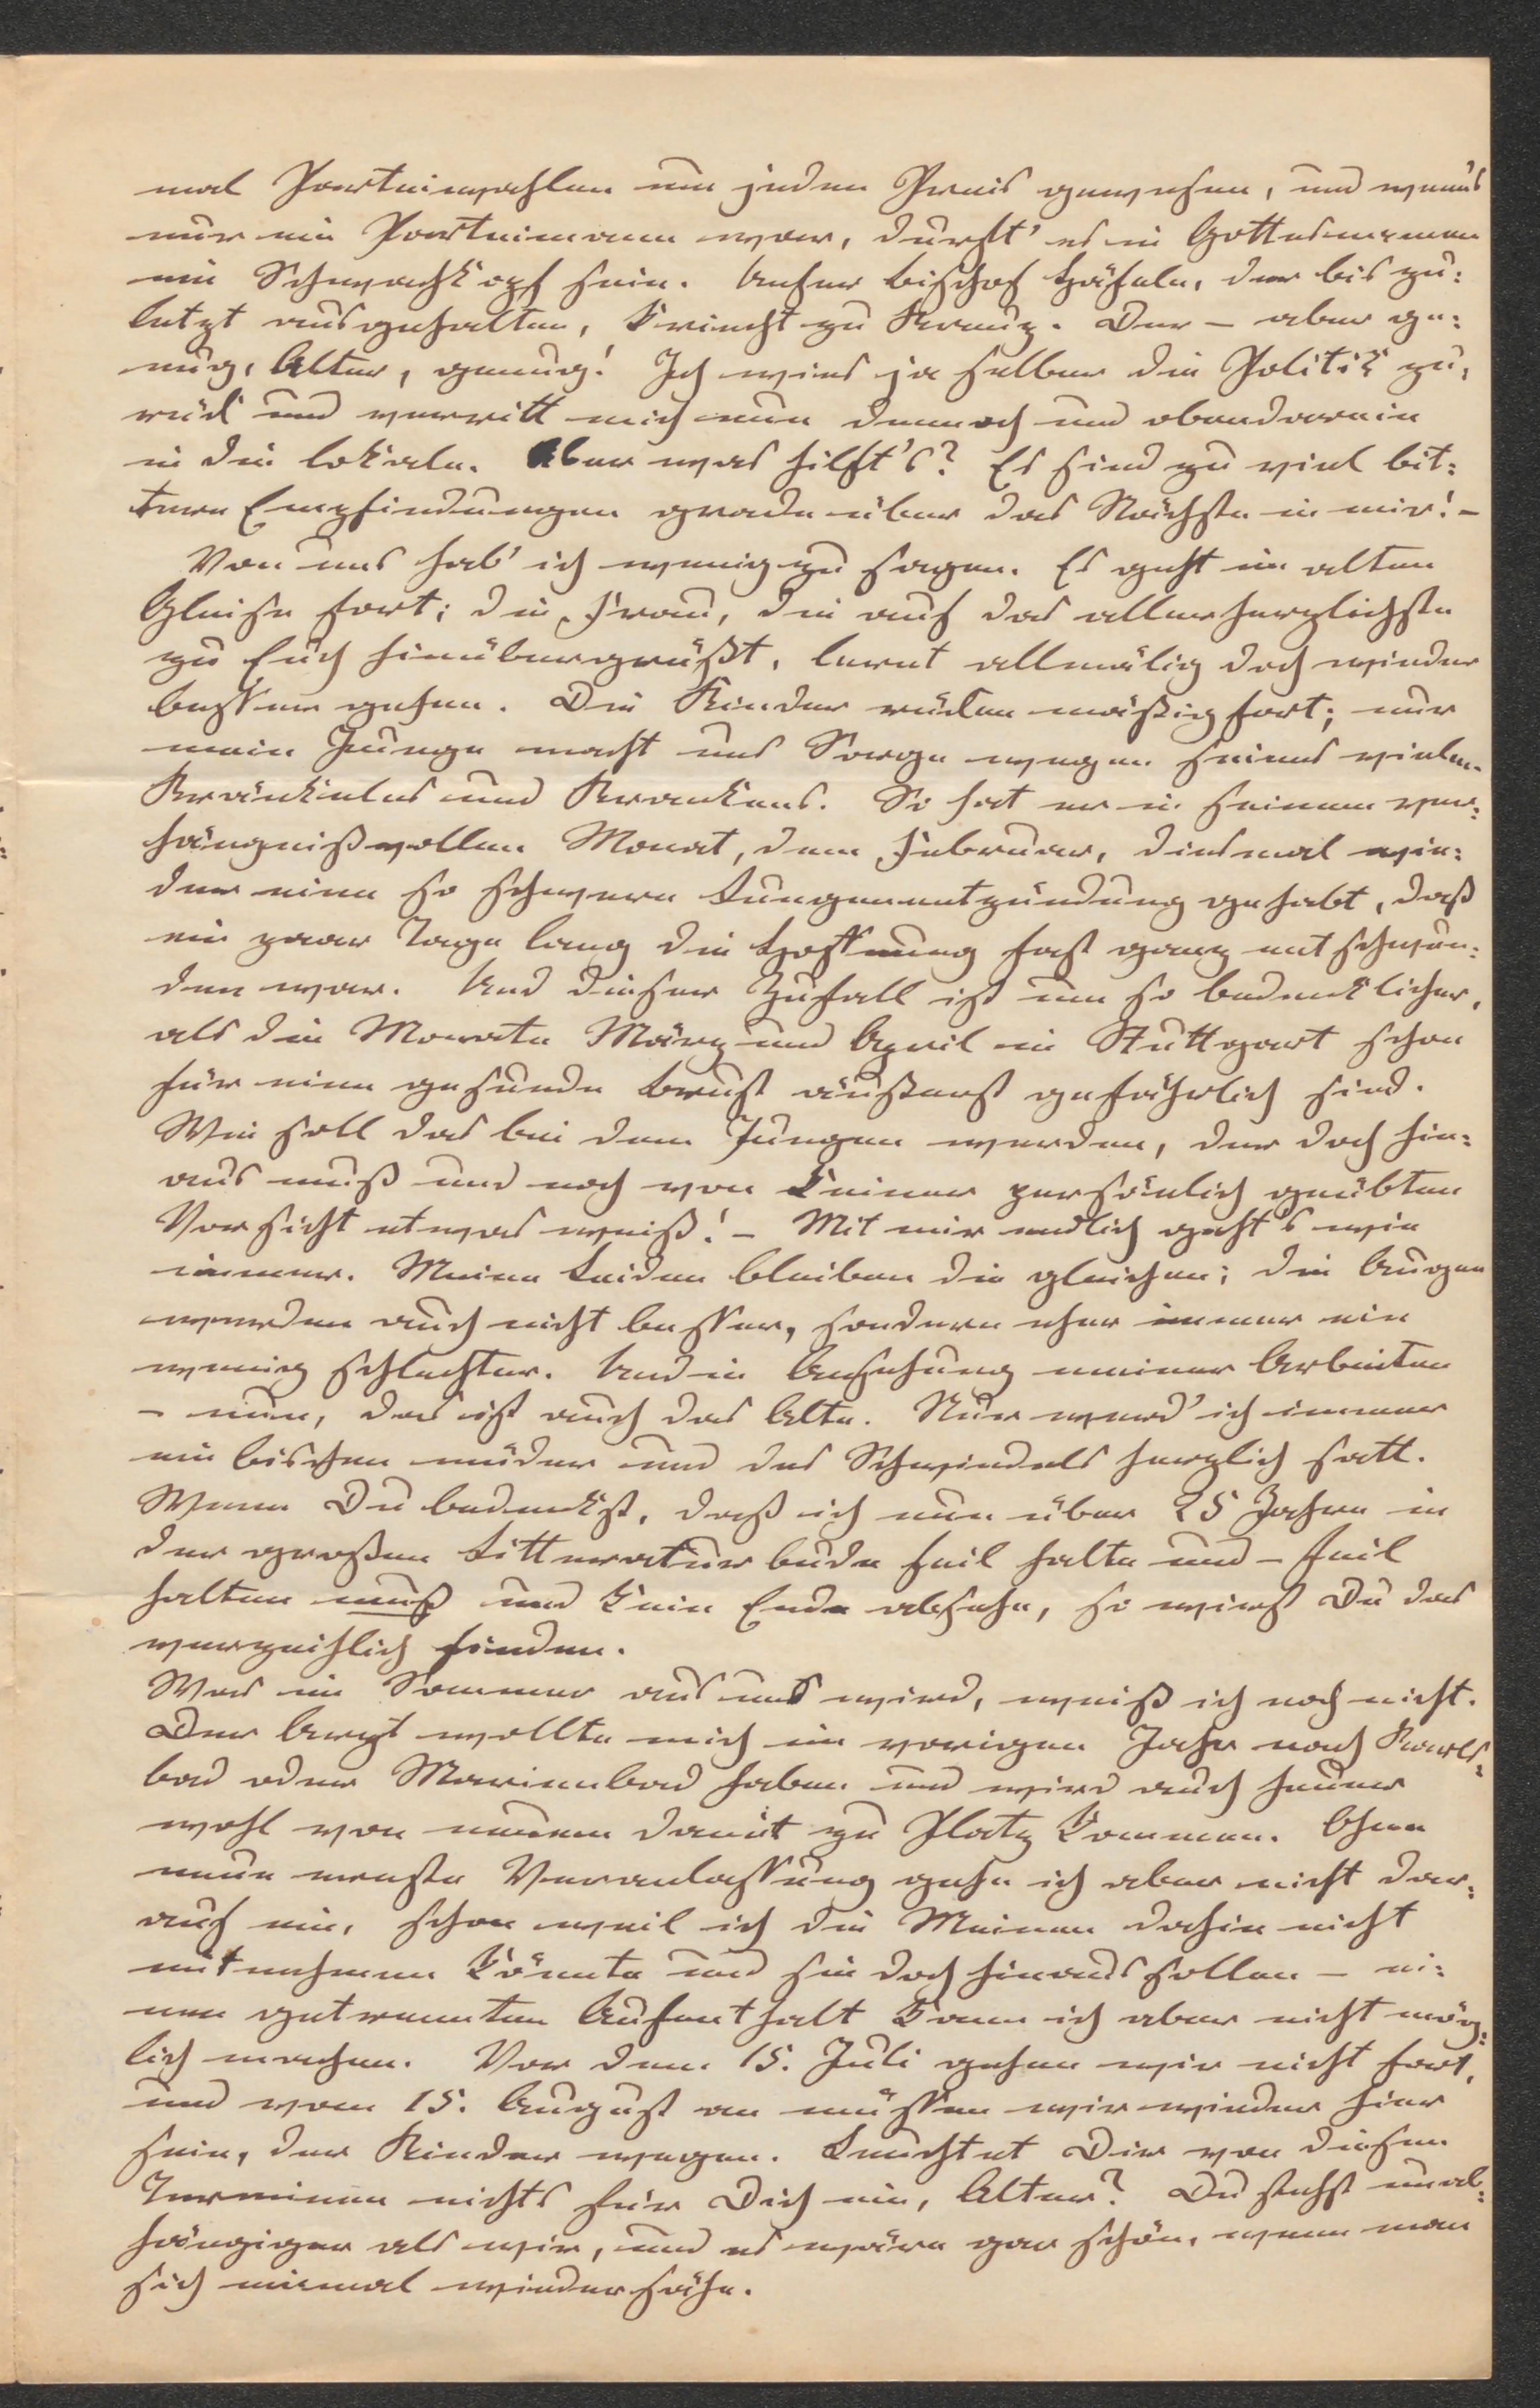 mal Parteiwahlen um jeden Preis gewesen, und wenns
nur ein Parteimann war, durft' es in Gottesnamen
ein Schwachkopf sein. Unser Bischof Häfele, der bis zu:
letzt ausgehalten, kriecht zu Kreuz. Der – aber ge:
nug, Alter, genug! Ich wies ja selber die Politik zu:
rück und verritt mich nun dennoch und obendarein
in die lokale. Aber was hilft's? Es sind zu viel bit:
tere Empfindungen grade über das Nächste in mir! –
Von uns hab' ich wenig zu sagen. Es geht im alten
Gleise fort; die Frau, die auf das allerherzlichste
zu Euch hinübergrüßt, lernt allmälig doch wieder
besser gehen. Die Kinder rücken mäßig fort; nur
mein Junge macht uns Sorge wegen seines vielen
Kränkelns und Krankens. So hat er in seinem ver:
hängnißvollen Monat, dem Februar, diesmal wie:
der eine so schwere Lungenentzündung gehabt, daß
ein paar Tage lang die Hoffnung fast ganz entschwun:
den war. Und dieser Zufall ist um so bedenklicher,
als die Monate März und April in Stuttgart schon
für eine gesunde Brust äußerst gefährlich sind.
Wie soll das bei dem Jungen werden, der doch hin:
aus muß und noch von keiner persönlich geübten
Vorsicht etwas weiß! – Mit mir endlich geht's wie
immer. Meine Leiden bleiben die gleichen; die Augen
werden auch nicht besser, sondern eher immer ein
wenig schlechter. Und in Ansehung meiner Arbeiten
– nun, das ist auch das Alte. Nur werd' ich immer
ein bischen müder und des Schwindels herzlich satt.
Wenn Du bedenkst, daß ich nun über 25 Jahre in
der großen Litteraturbude feil halte und – feil
halten muß und kein Ende absehe, so wirst Du das
verzeihlich finden.
Was im Sommer aus uns wird, weiß ich noch nicht.
Der Arzt wollte mich im vorigen Jahr nach Karls:
bad oder Marienbad haben und wird auch heuer
wohl von neuem damit zu Platz kommen. Ohne
neue ernste Veranlassung gehe ich aber nicht dar:
auf ein, schon weil ich die Meinen dahin nicht
mitnehmen könnte und sie doch hinaus sollen – ei:
nen getrennten Aufenthalt kann ich aber nicht mög:
lich machen. Vor dem 15. Juli gehen wir nicht fort,
und vom 15. August an müssen wir wieder hier
sein, der Kinder wegen. Leuchtet Dir von diesen
Terminen nichts für Dich ein, Alter? Du stehst unab:
hängiger als wir, und es wäre gar schön, wenn man
sich einmal wiedersähe.